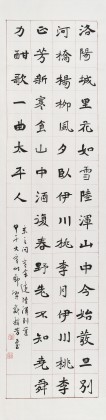 洛陽城里花如雪陸渾山中今始發旦別
河橋楊柳風夕臥伊川桃李月伊川桃李
正芳新寒食山中酒復春野老不知堯舜
力酣歌一曲太平人
宋之問寒食還陸渾別業